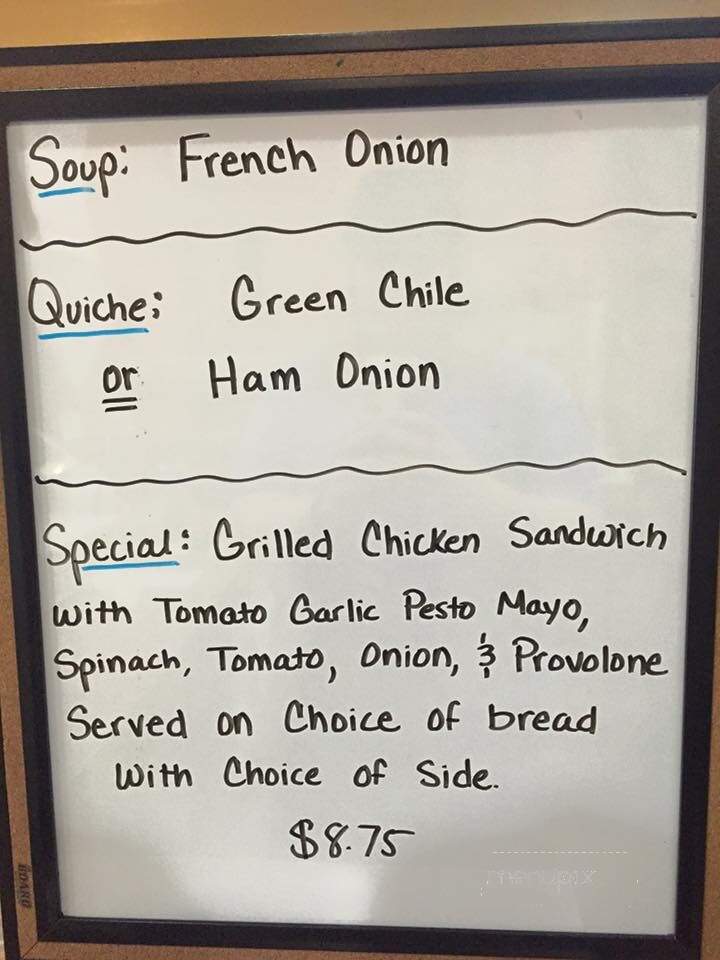 Soup: French Onion
Quiche: Green Chile
or Ham Onion
Special: Grilled Chicken Sandwich
with Tomato Garlic Pesto Mayo,
Spinach, Tomato, Onion, & Provolone
Served on Choice of bread
With Choice of Side.
$8.75
BOARD